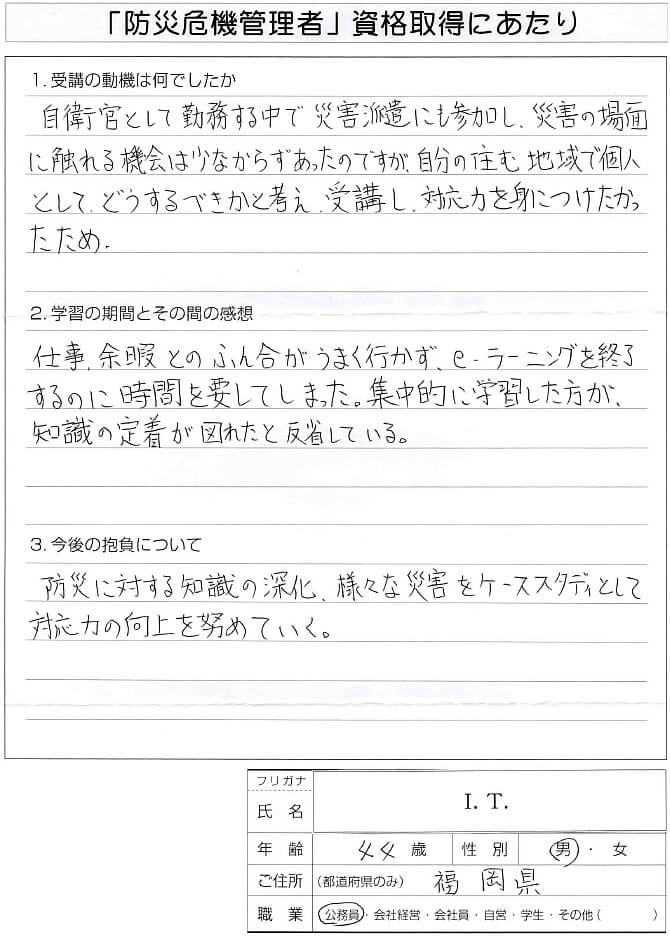 「防災危機管理者」資格取得にあたり
1. 受講の動機は何でしたか
自衛官として勤務する中で災害派遣にも参加し、災害の場面
に触れる機会は少なからずあったのですが、自分の住む地域で個人
として、どうするべきかと考え、受講し、対応力を身につけたかっ
たため.
2. 学習の期間とその間の感想
仕事、余暇とのふん合がうまく行かず、e-ラーニングを終了
するのに時間を要してしまった。集中的に学習した方が、
知識の定着が図れたと反省している。
3. 今後の抱負について
防災に対する知識の深化、様々な災害をケーススタディとして
対応力の向上を努めていく。
フリガナ
氏 名 I. T.
年 齢 44 歳 性 別 男・女
ご住所 (都道府県のみ) 福岡県
職 業 公務員・会社経営・会社員・自営・学生・その他( )